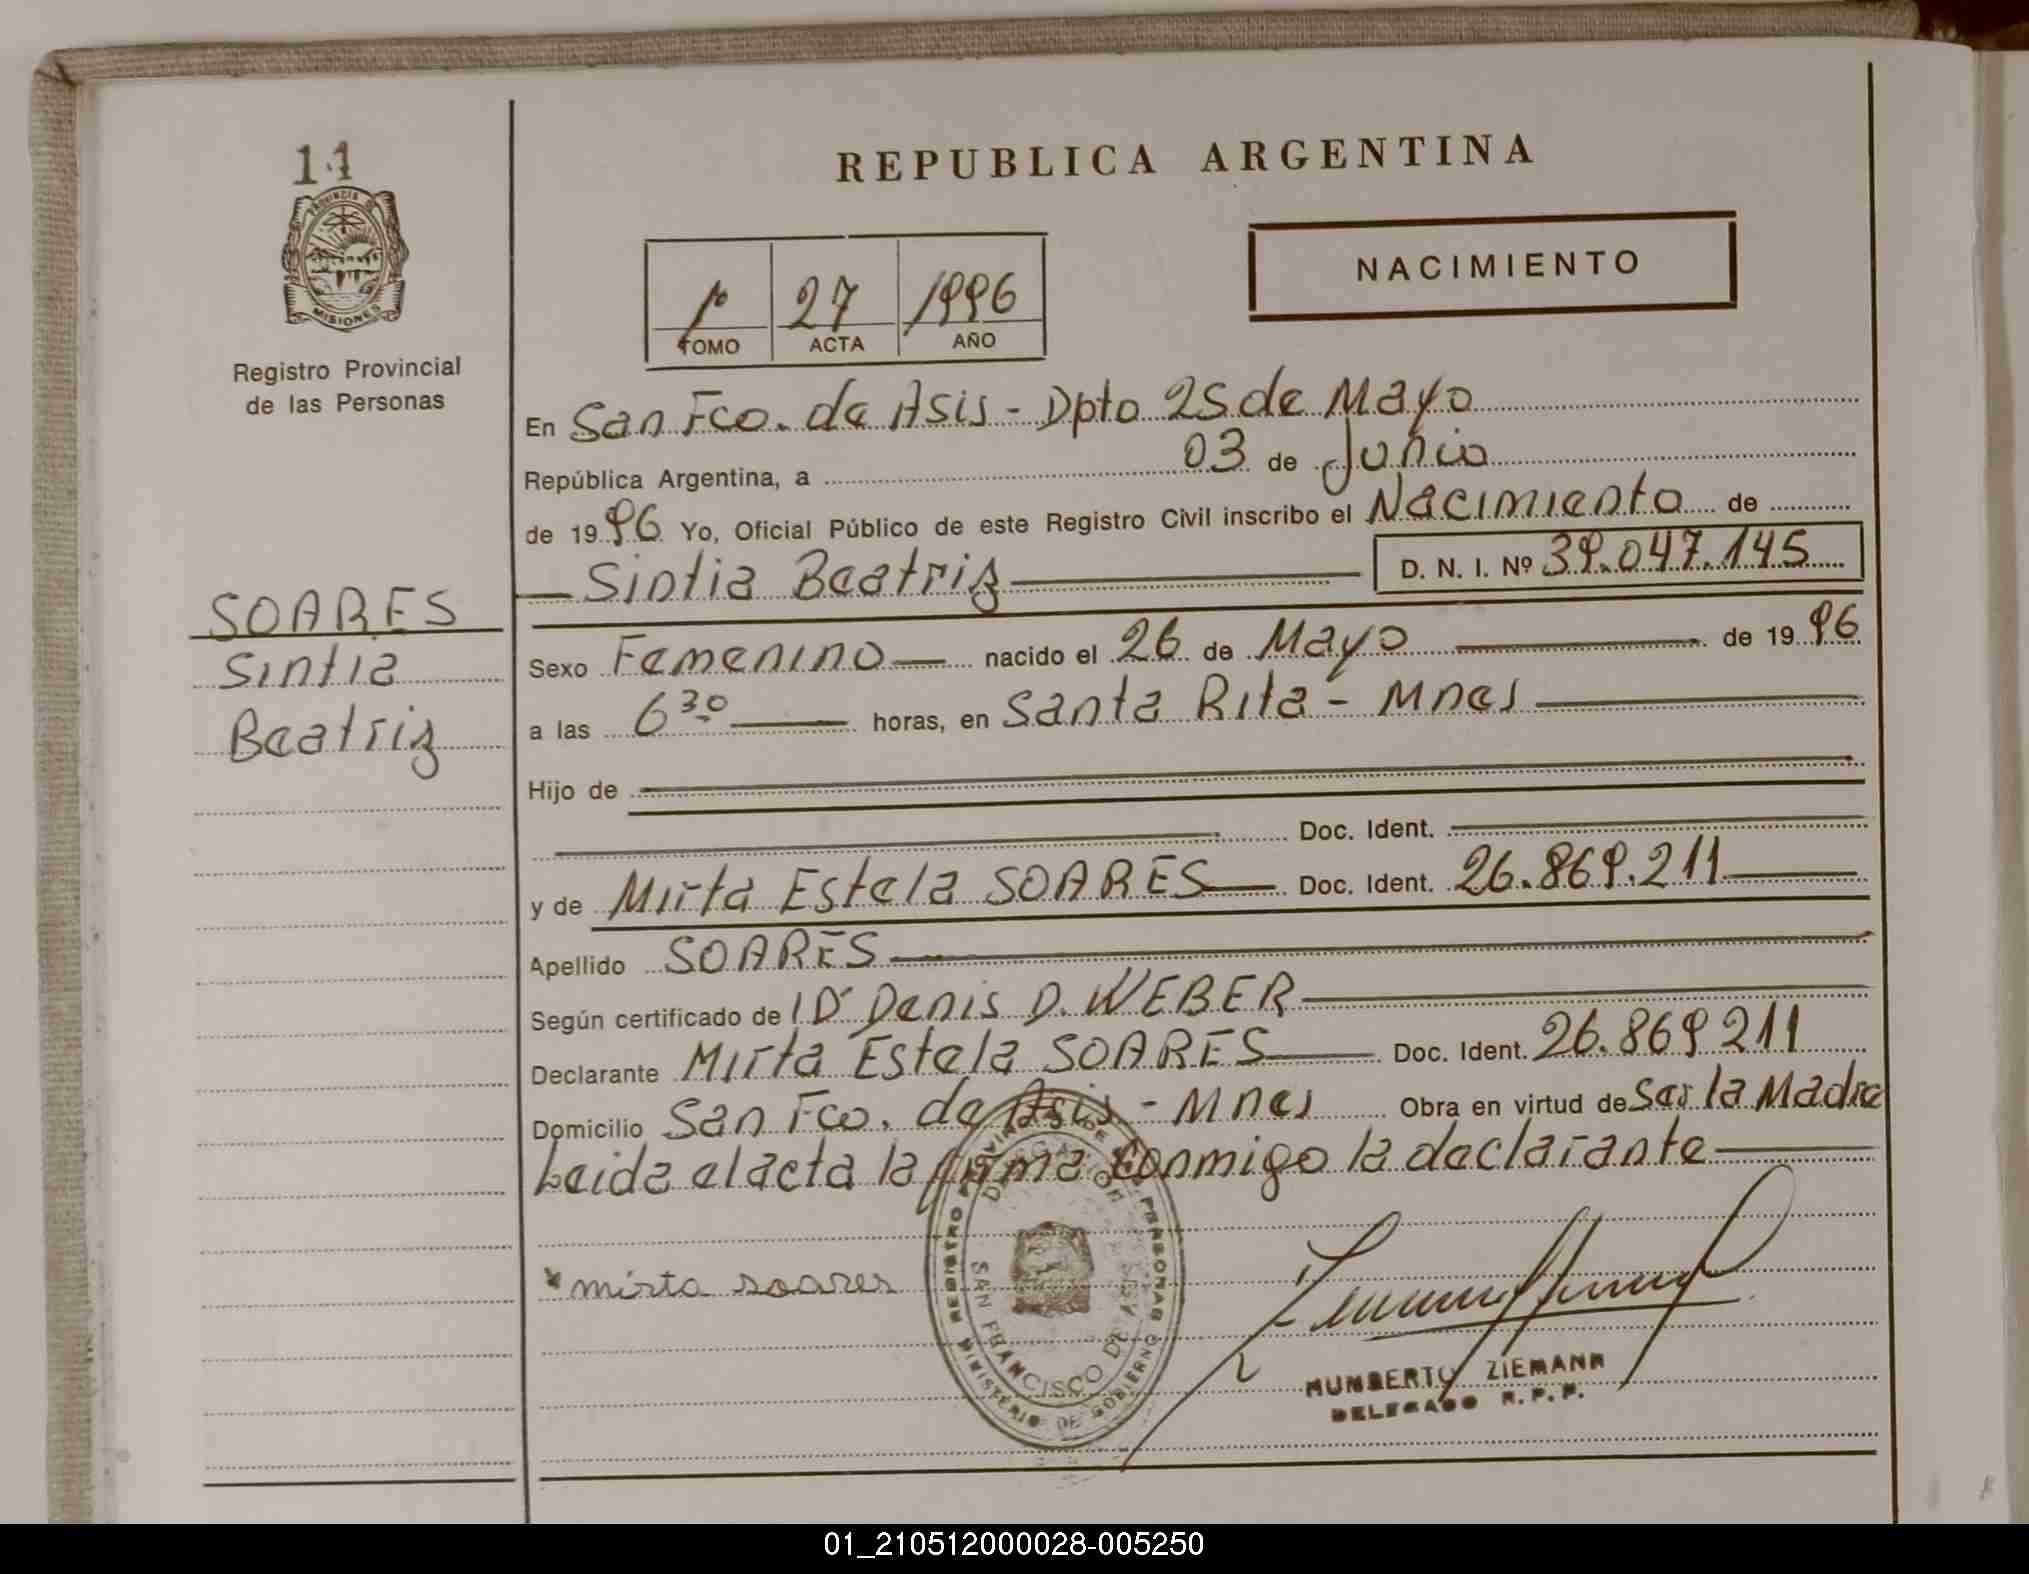 11
PROVINCIA DE
MISIONES
Registro Provincial
de las Personas
SOARES
Sintia
Beatriz
REPUBLICA ARGENTINA
1º 27 1996
TOMO ACTA AÑO
NACIMIENTO
En San Fco. de Asis - Dpto 25 de Mayo
República Argentina, a 03 de Junio
de 1996 Yo, Oficial Público de este Registro Civil inscribo el Nacimiento de
Sintia Beatriz D. N. I. Nº 39.047.145
Sexo Femenino nacido el 26 de Mayo de 1996
a las 6 30 horas, en Santa Rita - Mnes
Hijo de
Doc. Ident.
y de Mirta Estela SOARES Doc. Ident. 26.869.211
Apellido SOARES
Según certificado de Dr Denis D. WEBER
Declarante Mirta Estela SOARES Doc. Ident. 26.869 211
Domicilio San Fco. de Asis - Mnes Obra en virtud de Ser la Madre
Leida el acta la firma conmigo la declarante
mirta soares
REGISTRO PROVINCIAL DE LAS PERSONAS
DELEGACION
SAN FRANCISCO DE ASIS
MINISTERIO DE GOBIERNO
HUMBERTO ZIEMANN
DELEGADO R.P.P.
01_210512000028-005250